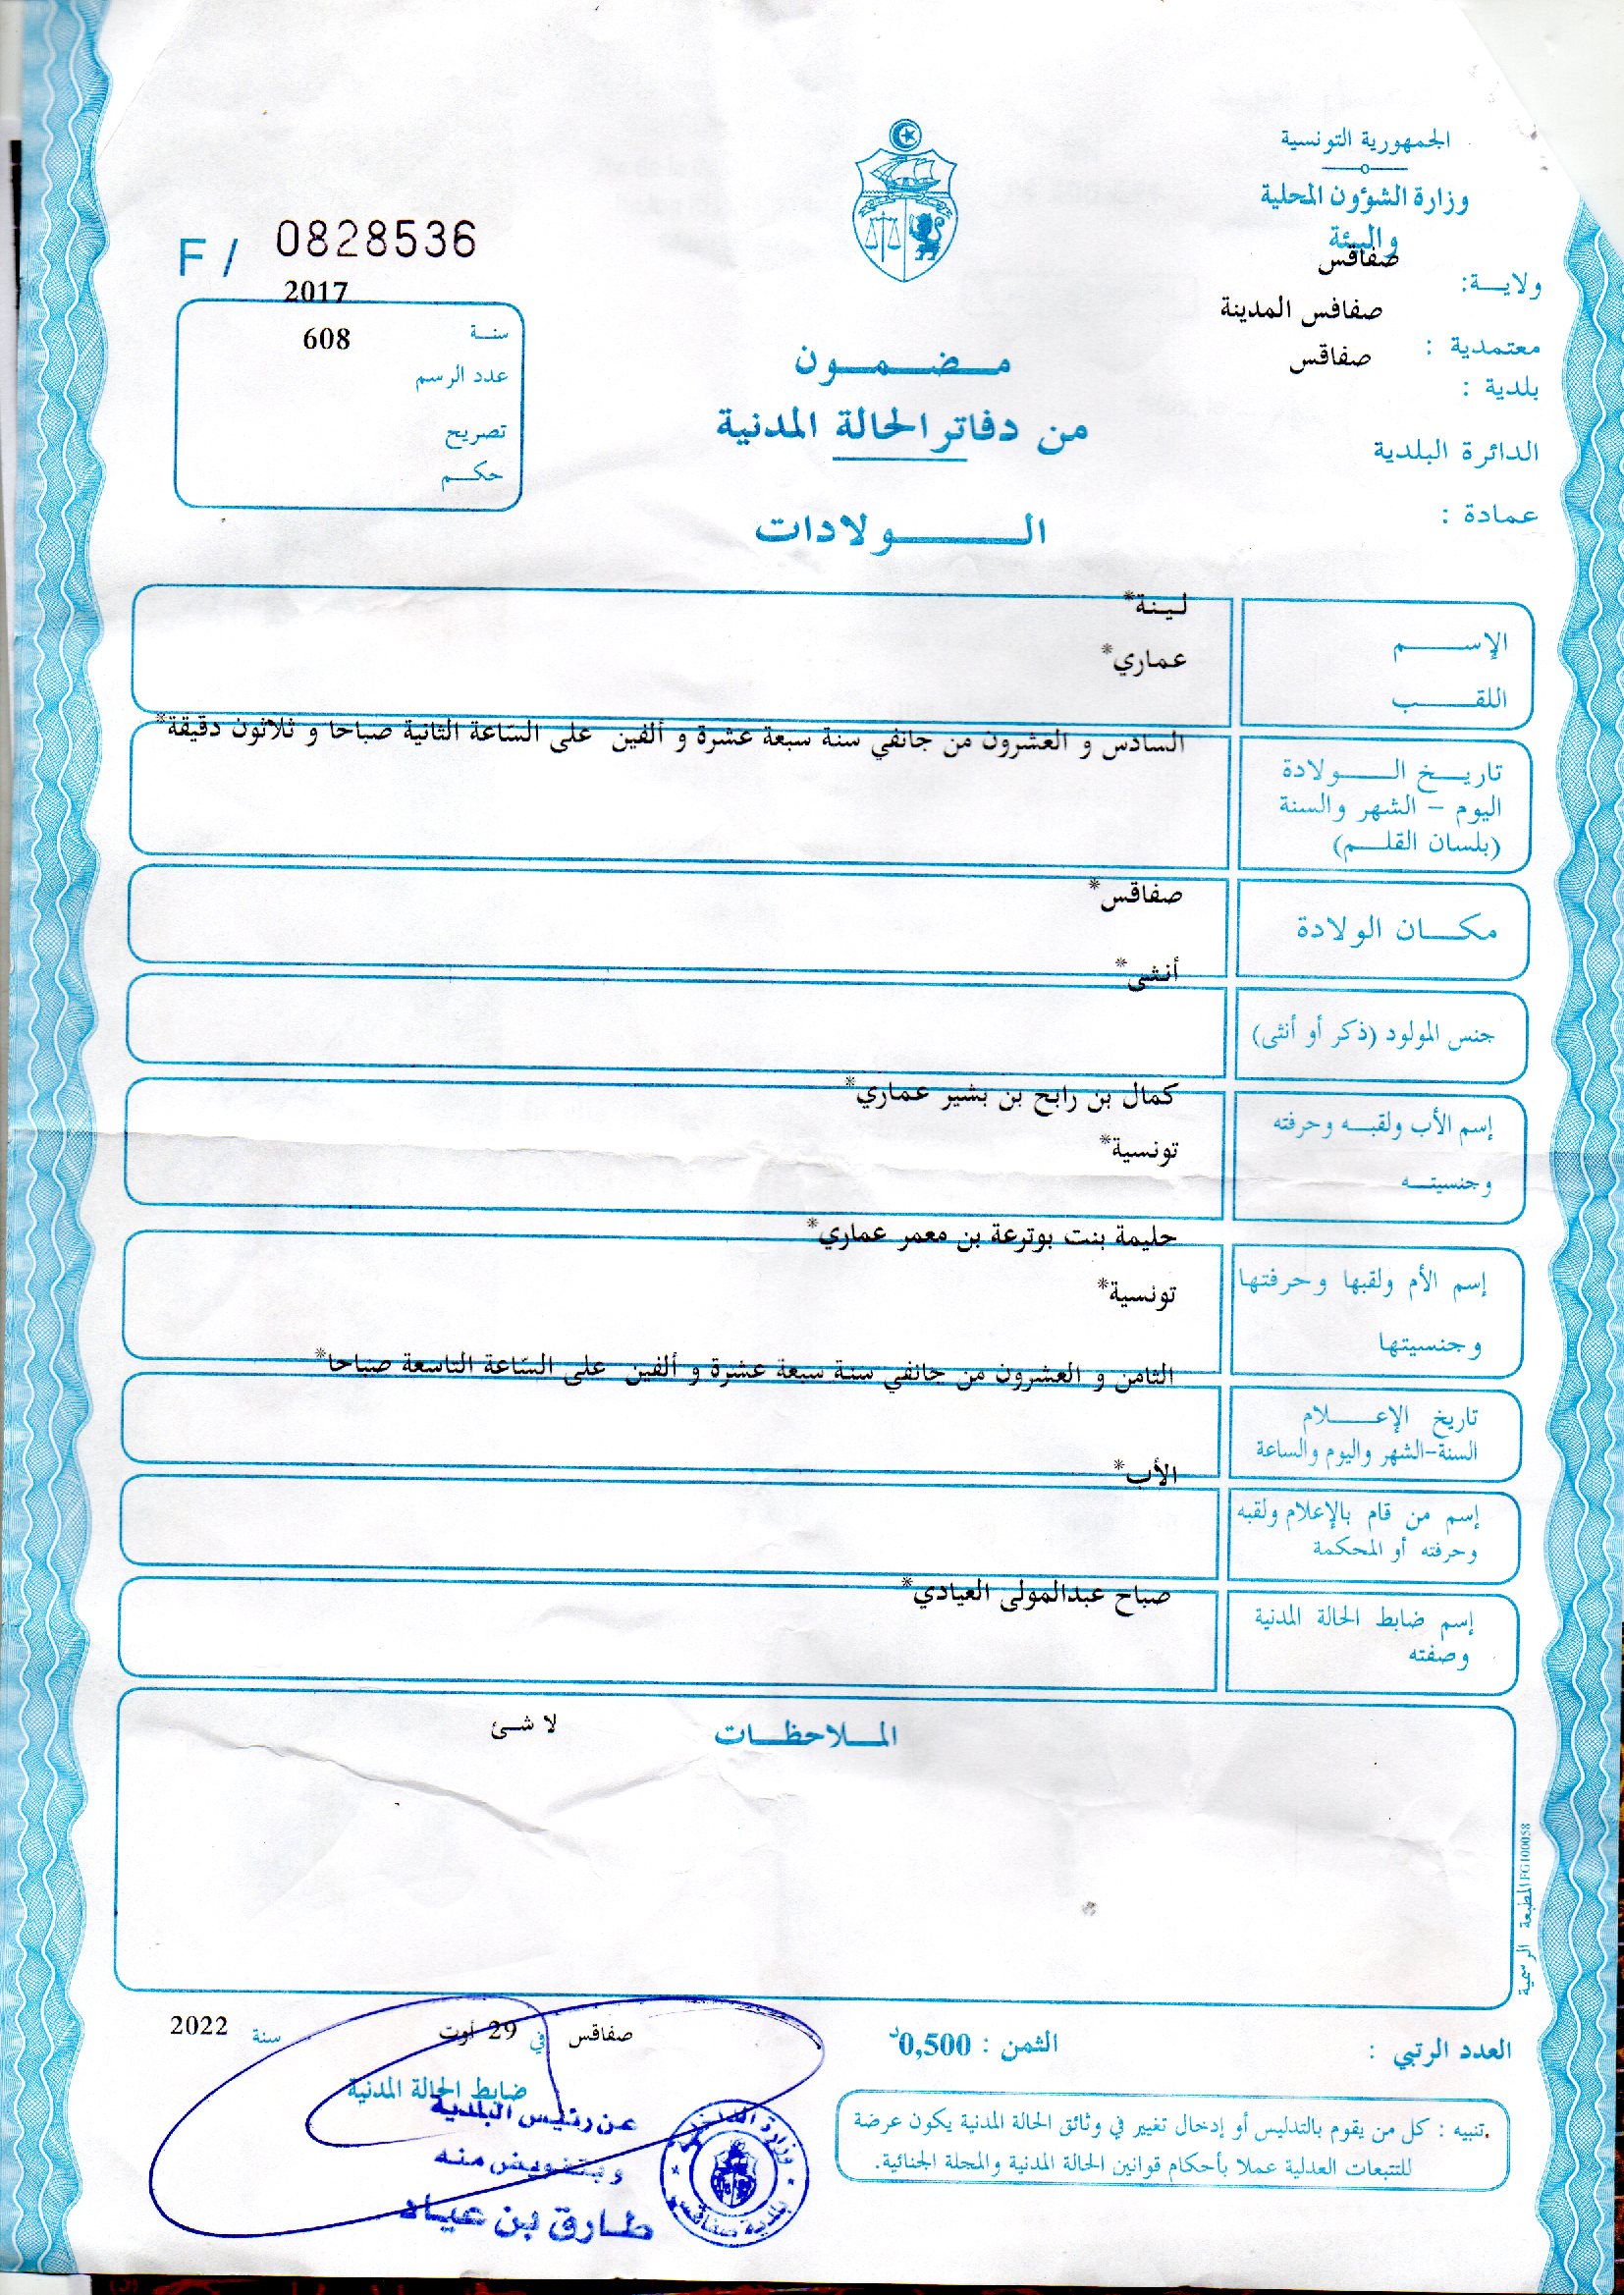 الجمهورية التونسية
وزارة الشؤون المحلية
والبيئة
ولاية: صفاقس
معتمدية : صفاقس المدينة
بلدية : صفاقس
الدائرة البلدية
عمادة :
F / 0828536
سنة 2017
عدد الرسم 608
تصريح
حكم
مضمون
من دفاتر الحالة المدنية
الولادات
الإسم
لينة*
اللقب
عماري*
تاريخ الولادة
اليوم - الشهر والسنة
(بلسان القلم)
السادس و العشرون من جانفي سنة سبعة عشرة و ألفين على الساعة الثانية صباحا و ثلاثون دقيقة*
مكان الولادة
صفاقس*
جنس المولود (ذكر أو أنثى)
أنثى*
إسم الأب ولقبه وحرفته
وجنسيته
كمال بن رابح بن بشير عماري*
تونسية*
إسم الأم ولقبها وحرفتها
وجنسيتها
حليمة بنت بوترعة بن معمر عماري*
تونسية*
تاريخ الإعلام
السنة-الشهر واليوم والساعة
الثامن و العشرون من جانفي سنة سبعة عشرة و ألفين على الساعة التاسعة صباحا*
إسم من قام بالإعلام ولقبه
وحرفته أو المحكمة
الأب*
إسم ضابط الحالة المدنية
وصفته
صباح عبدالمولى العيادي*
الملاحظات
لا شئ
المطبعة الرسمية FG100058
العدد الرتبي :
الثمن : 0,500د
صفاقس في 29 أوت سنة 2022
ضابط الحالة المدنية
عن رئيس البلدية
وبتفويض منه
طارق بن عياد
بلدية صفاقس
تنبيه : كل من يقوم بالتدليس أو إدخال تغيير في وثائق الحالة المدنية يكون عرضة
للتتبعات العدلية عملا بأحكام قوانين الحالة المدنية والمجلة الجنائية.